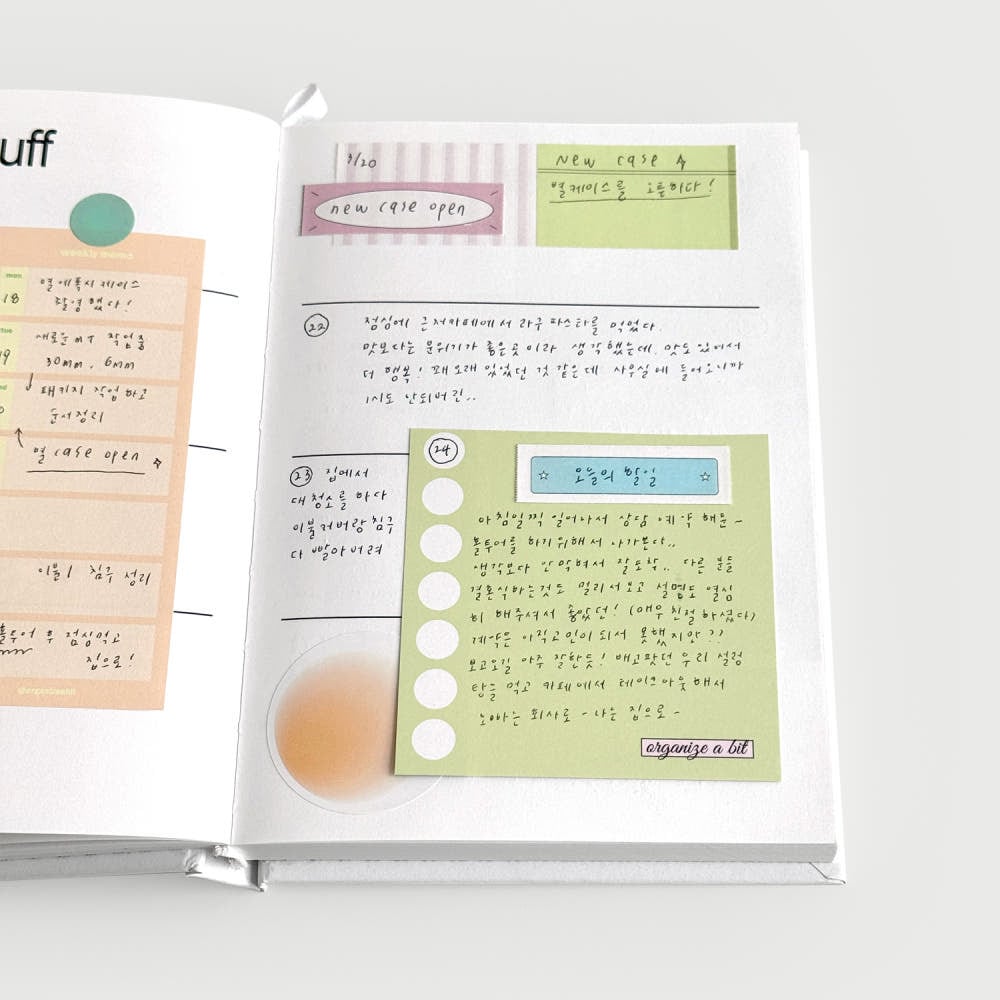 uff
weekly memo
mon
18
별에폭시케이스
촬영했다!
tue
19
새로운 MT 작업중
30mm, 6mm
패키지 작업하고
순서정리
별 case open
이불 침구 정리
홀투어 후 점심먹고
집으로!
8/20
new case open
New case
별케이스를 오픈하다!
22
점심에 근처카페에서 라구파스타를 먹었다.
맛보다는 분위기가 좋은곳이라 생각했는데. 맛도있어서
더 행복! 꽤 오래 있었던 것 같은데 사무실에 들어오니까
1시도 안되버린..
23 집에서
대청소를 하다
이불커버랑 침구
다 빨아버려
24
오늘의 할일
아침일찍 일어나서 상담 예약해둔~
홀투어를 하기위해서 나가본다..
생각보다 안막혀서 잘도착.. 다른 분들
결혼식하는것도 멀리서보고 설명도 열심
히 해주셔서 좋았던! (매우친절하셨다)
계약은 아직고민이 되서 못했지만??
보고오길 아주 잘한듯! 배고팟던 우리 설렁
탕을 먹고 카페에서 테이크아웃해서
오빠는 회사로 - 나는 집으로 -
organize a bit